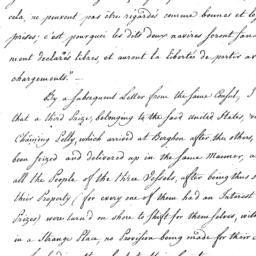 cela, ne peuvent pas être regardés comme bonnes et le
prises; c'est pourquoi les dits deux navires seront sans
ment declarés libres, et auront la liberté de partir av
chargements."
By a subsequent Letter from the same Consul, I
that a third Prize, belonging to the said United States,
Charming Polly, which arrived at Berghen after the others,
been seized and delivered up in the same Manner, a
all the People of the three Vessels, after being thus s
their Property (for every one of them had an Interest
Prizes) were turn'd on shore to shift for themselves, with
in a Strange Place, no Provision being made for their